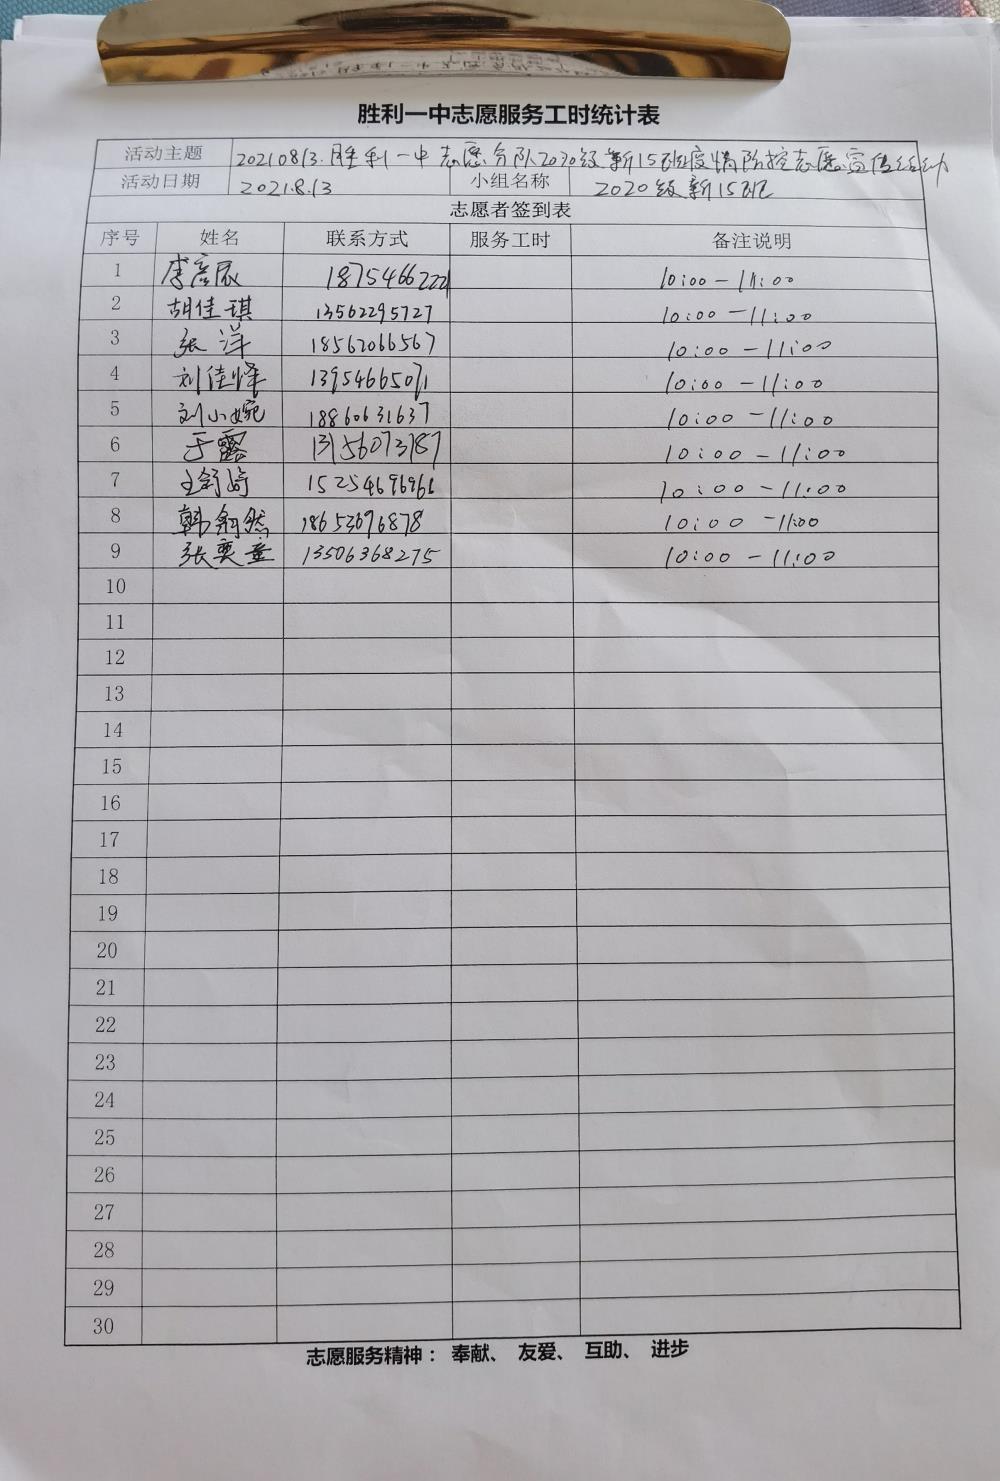 胜利一中志愿服务工时统计表
活动主题 20210813.胜利一中志愿分队2020级新15班疫情防控志愿宣传活动
活动日期 2021.8.13 小组名称 2020级新15班
志愿者签到表
序号 姓名 联系方式 服务工时 备注说明
1 李彦辰 1875466222 10:00-11:00
2 胡佳琪 13562295727 10:00-11:00
3 张洋 18562066567 10:00-11:00
4 刘佳怿 13954665071 10:00-11:00
5 刘小婉 18860631637 10:00-11:00
6 于露 13156073787 10:00-11:00
7 王舒婷 15254696966 10:00-11:00
8 韩蔚然 18653696878 10:00-11:00
9 张奕童 13506368275 10:00-11:00
10
11
12
13
14
15
16
17
18
19
20
21
22
23
24
25
26
27
28
29
30
志愿服务精神：奉献、友爱、互助、进步